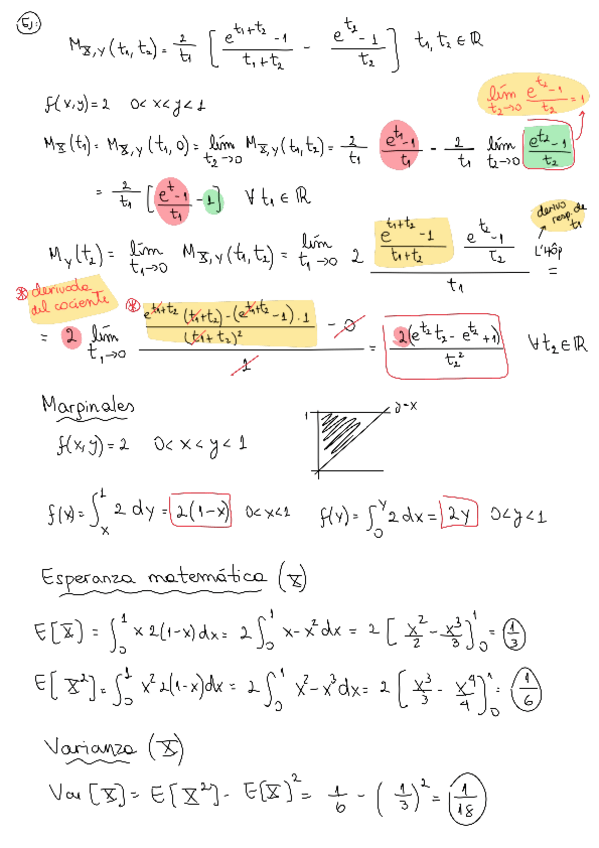 Ej:
M_{X,Y}(t1, t2) = 2/t1 [ (e^{t1+t2} - 1)/(t1+t2) - (e^{t2} - 1)/t2 ] t1, t2 ∈ ℝ
lím_{t2→0} (e^{t2} - 1)/t2 = 1
f(x,y) = 2 0 < x < y < 1
M_X(t1) = M_{X,Y}(t1, 0) = lím_{t2→0} M_{X,Y}(t1, t2) = 2/t1 (e^{t1} - 1)/t1 - 2/t1 lím_{t2→0} (e^{t2} - 1)/t2
= 2/t1 [ (e^t - 1)/t1 - 1 ] ∀ t1 ∈ ℝ
derivo resp. de t1
M_Y(t2) = lím_{t1→0} M_{X,Y}(t1, t2) = lím_{t1→0} 2 ((e^{t1+t2} - 1)/(t1+t2) (e^{t2} - 1)/t2)/t1 L'Hôp =
* derivada del cociente
= 2 lím_{t1→0} (* (e^{t1+t2} (t1+t2) - (e^{t1+t2} - 1) · 1)/(t1+t2)^2 - 0)/1 = 2(e^{t2} t2 - e^{t2} + 1)/t2^2 ∀ t2 ∈ ℝ
Marginales
f(x,y) = 2 0 < x < y < 1
1 y=x
f(x) = ∫_x^1 2 dy = 2(1-x) 0<x<1 f(y) = ∫_0^y 2 dx = 2y 0<y<1
Esperanza matemática (X)
E[X] = ∫_0^1 x 2(1-x) dx = 2 ∫_0^1 x - x^2 dx = 2 [ x^2/2 - x^3/3 ]_0^1 = 1/3
E[X^2] = ∫_0^1 x^2 2(1-x) dx = 2 ∫_0^1 x^2 - x^3 dx = 2 [ x^3/3 - x^4/4 ]_0^1 = 1/6
Varianza (X)
Var [X] = E[X^2] - E[X]^2 = 1/6 - (1/3)^2 = 1/18